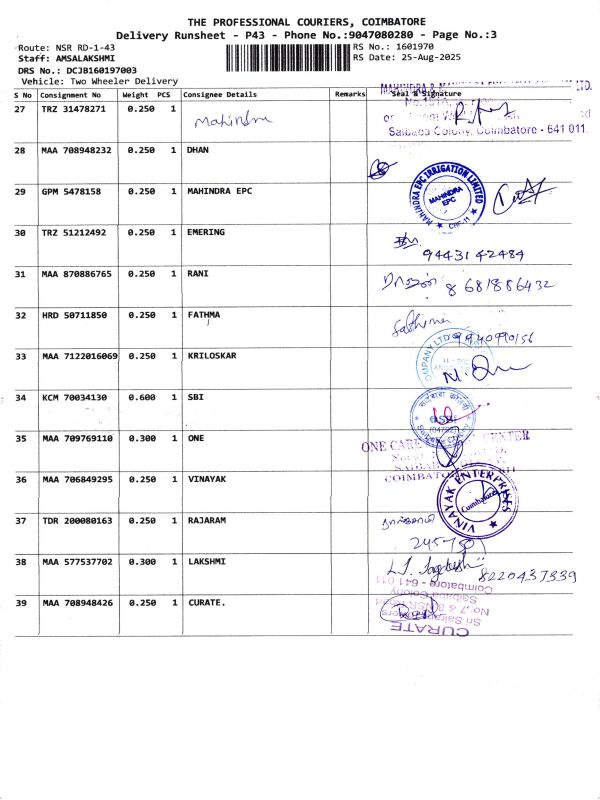 THE PROFESSIONAL COURIERS, COIMBATORE
Delivery Runsheet - P43 - Phone No.:9047080280 - Page No.:3
Route: NSR RD-1-43
RS No.: 1601970
Staff: AMSALAKSHMI
RS Date: 25-Aug-2025
DRS No.: DCJB160197003
Vehicle: Two Wheeler Delivery
S No Consignment No Weight PCS Consignee Details Remarks Seal & Signature
27 TRZ 31478271 0.250 1 Mahindra
Saibaba Colony, Coimbatore - 641 011.
28 MAA 708948232 0.250 1 DHAN
29 GPM 5478158 0.250 1 MAHINDRA EPC
MAHINDRA EPC IRRIGATION LIMITED
MAHINDRA EPC
30 TRZ 51212492 0.250 1 EMERING
94431 42484
31 MAA 870886765 0.250 1 RANI
8 681886432
32 HRD 50711850 0.250 1 FATHMA
fathima
9940990156
33 MAA 7122016069 0.250 1 KRILOSKAR
34 KCM 70034130 0.600 1 SBI
35 MAA 709769110 0.300 1 ONE
ONE CARE CENTER
36 MAA 706849295 0.250 1 VINAYAK
VINAYAK ENTERPRISES
Coimbatore
37 TDR 200080163 0.250 1 RAJARAM
38 MAA 577537702 0.300 1 LAKSHMI
L.J. Jagdesh
8220437339
39 MAA 708948426 0.250 1 CURATE.
Coimbatore - 641 011
Saibaba Colony
CURATE